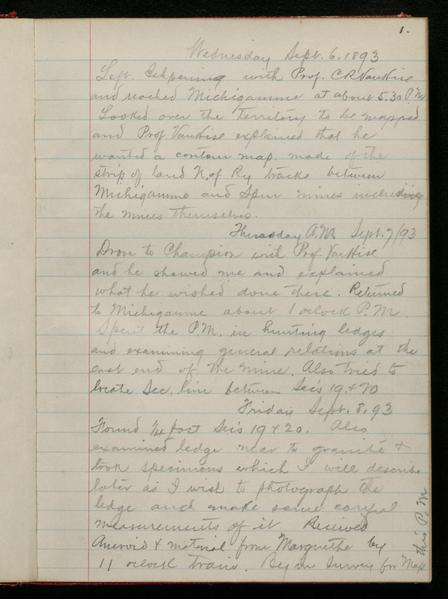 1.
Wednesday Sept. 6. 1893
Left Ishpeming with Prof. C R Van Hise
and reached Michigamme at about 5.30 P.M.
Looked over the territory to be mapped
and Prof Van Hise explained that he
wanted a contour map made of the
strip of land N. of Ry tracks between
Michigamme and Spurr mines including
the mines themselves.
Thursday A.M. Sept. 7/93
Drove to Champion with Prof. Van Hise
and he showed me and explained
what he wished done there. Returned
to Michigamme about 1 oclock P.M.
Spent the P.M. in hunting ledges
and examining general relations at the
east end of the mine. Also tried to
locate Sec. line between Sec's 19 & 20
Friday Sept. 8, 93
Found 1/4 post Sec's 19 & 20. Also
examined ledge near to granite &
took specimens which I will describe
later as I wish to photograph the
ledge and make some careful
measurements of it Received
Aneroid & material from Marquette by
11 oclock train. Began Survey for Map
this P.M